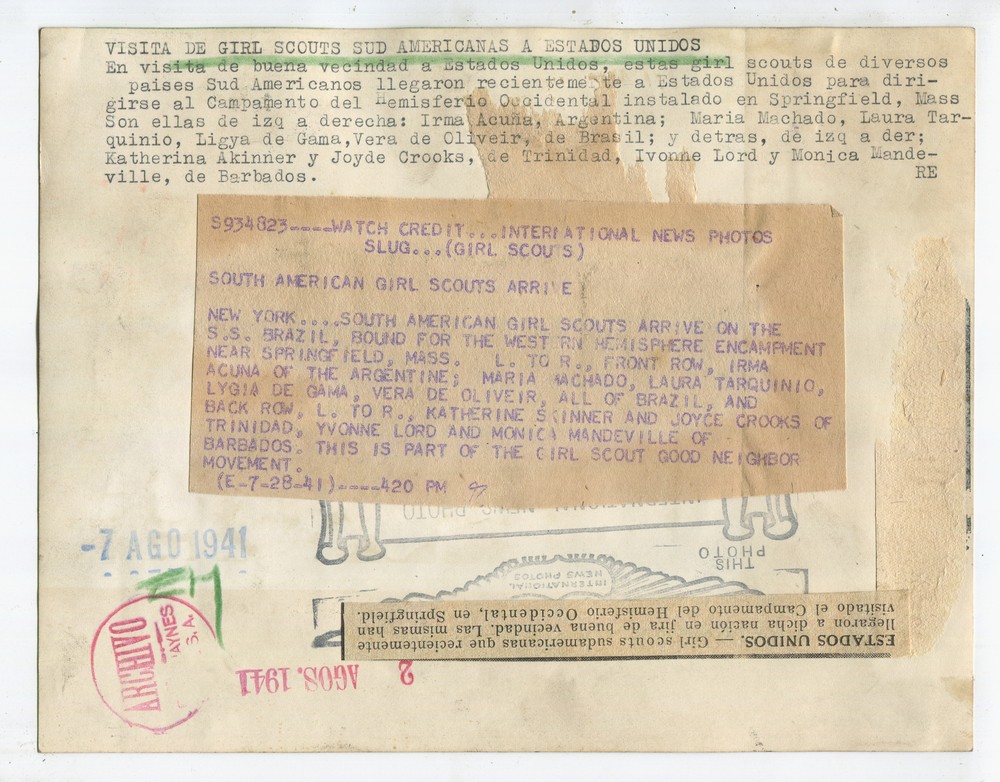 VISITA DE GIRL SCOUTS SUD AMERICANAS A ESTADOS UNIDOS
En visita de buena vecindad a Estados Unidos, estas girl scouts de diversos
paises Sud Americanos llegaron recientemente a Estados Unidos para diri-
girse al Campamento del Hemisferio Occidental instalado en Springfield, Mass
Son ellas de izq a derecha: Irma Acuña, Argentina; Maria Machado, Laura Tar-
quinio, Ligya de Gama,Vera de Oliveir, de Brasil; y detras, de izq a der;
Katherina Akinner y Joyde Crooks, de Trinidad, Ivonne Lord y Monica Mande-
ville, de Barbados.
RE
S934823----WATCH CREDIT...INTERNATIONAL NEWS PHOTOS
SLUG...(GIRL SCOUTS)
SOUTH AMERICAN GIRL SCOUTS ARRIVE
NEW YORK....SOUTH AMERICAN GIRL SCOUTS ARRIVE ON THE
S.S. BRAZIL, BOUND FOR THE WESTERN HEMISPHERE ENCAMPMENT
NEAR SPRINGFIELD, MASS. L. TO R., FRONT ROW, IRMA
ACUNA OF THE ARGENTINE; MARIA MACHADO, LAURA TARQUINIO,
LYGIA DE GAMA, VERA DE OLIVEIR, ALL OF BRAZIL, AND
BACK ROW, L. TO R., KATHERINE SKINNER AND JOYCE CROOKS OF
TRINIDAD, YVONNE LORD AND MONICA MANDEVILLE OF
BARBADOS. THIS IS PART OF THE GIRL SCOUT GOOD NEIGHBOR
MOVEMENT.
(E-7-28-41)----420 PM
INTERNATIONAL NEWS PHOTO
THIS
PHOTO
INTERNATIONAL
NEWS PHOTOS
-7 AGO 1941
ARCHIVO
AYNES
S. A.
2 AGOS. 1941
ESTADOS UNIDOS. — Girl scouts sudamericanas que recientemente
llegaron a dicha nación en jira de buena vecindad. Las mismas han
visitado el Campamento del Hemisferio Occidental, en Springfield.